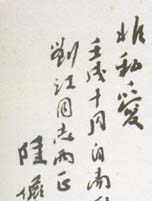 非私爱
壬戌十月自南
刘江同志两正
陆俨